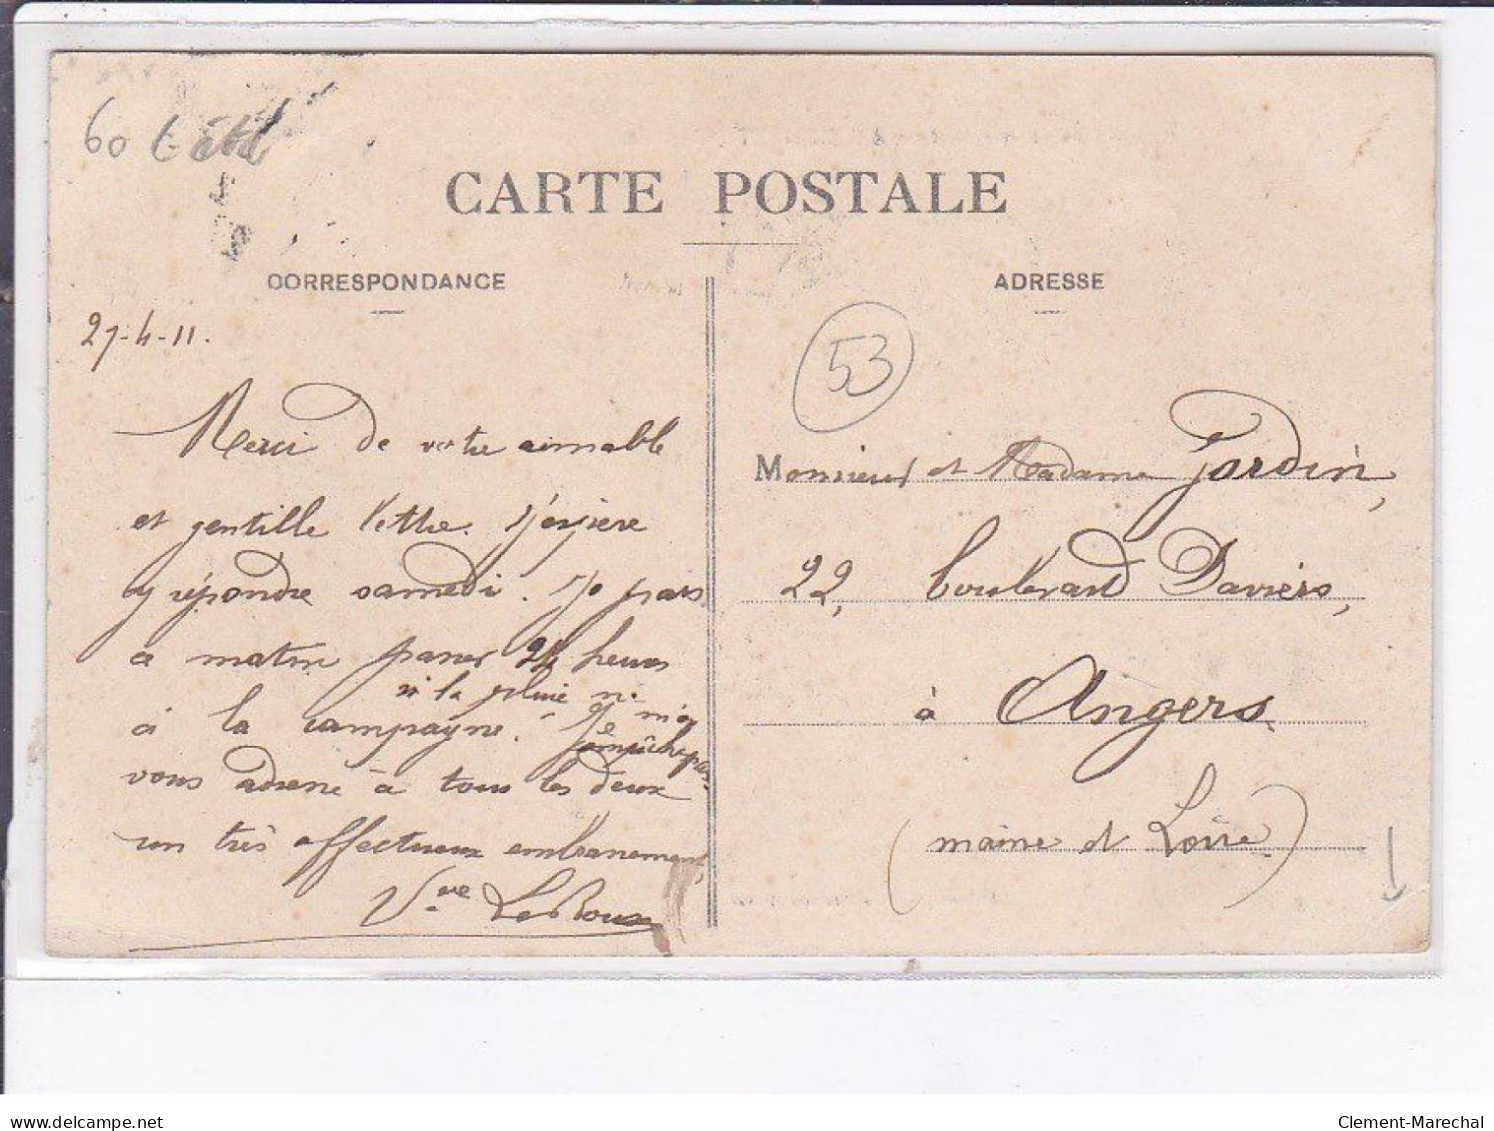 60 € état
CARTE POSTALE
CORRESPONDANCE
ADRESSE
27-4-11.
53
Merci de votre aimable
et gentille lettre. J'espère
y répondre samedi. Je pars
ce matin passer 24 heures
à la campagne. si la pluie ne m'en empêche pas. Je
vous adresse à tous les deux
un très affectueux embrassement,
Vve Leroux
Monsieur et Madame Jardin,
22, boulevard Daviers,
à Angers
(Maine et Loire)
delcampe.net
Clement-Marechal